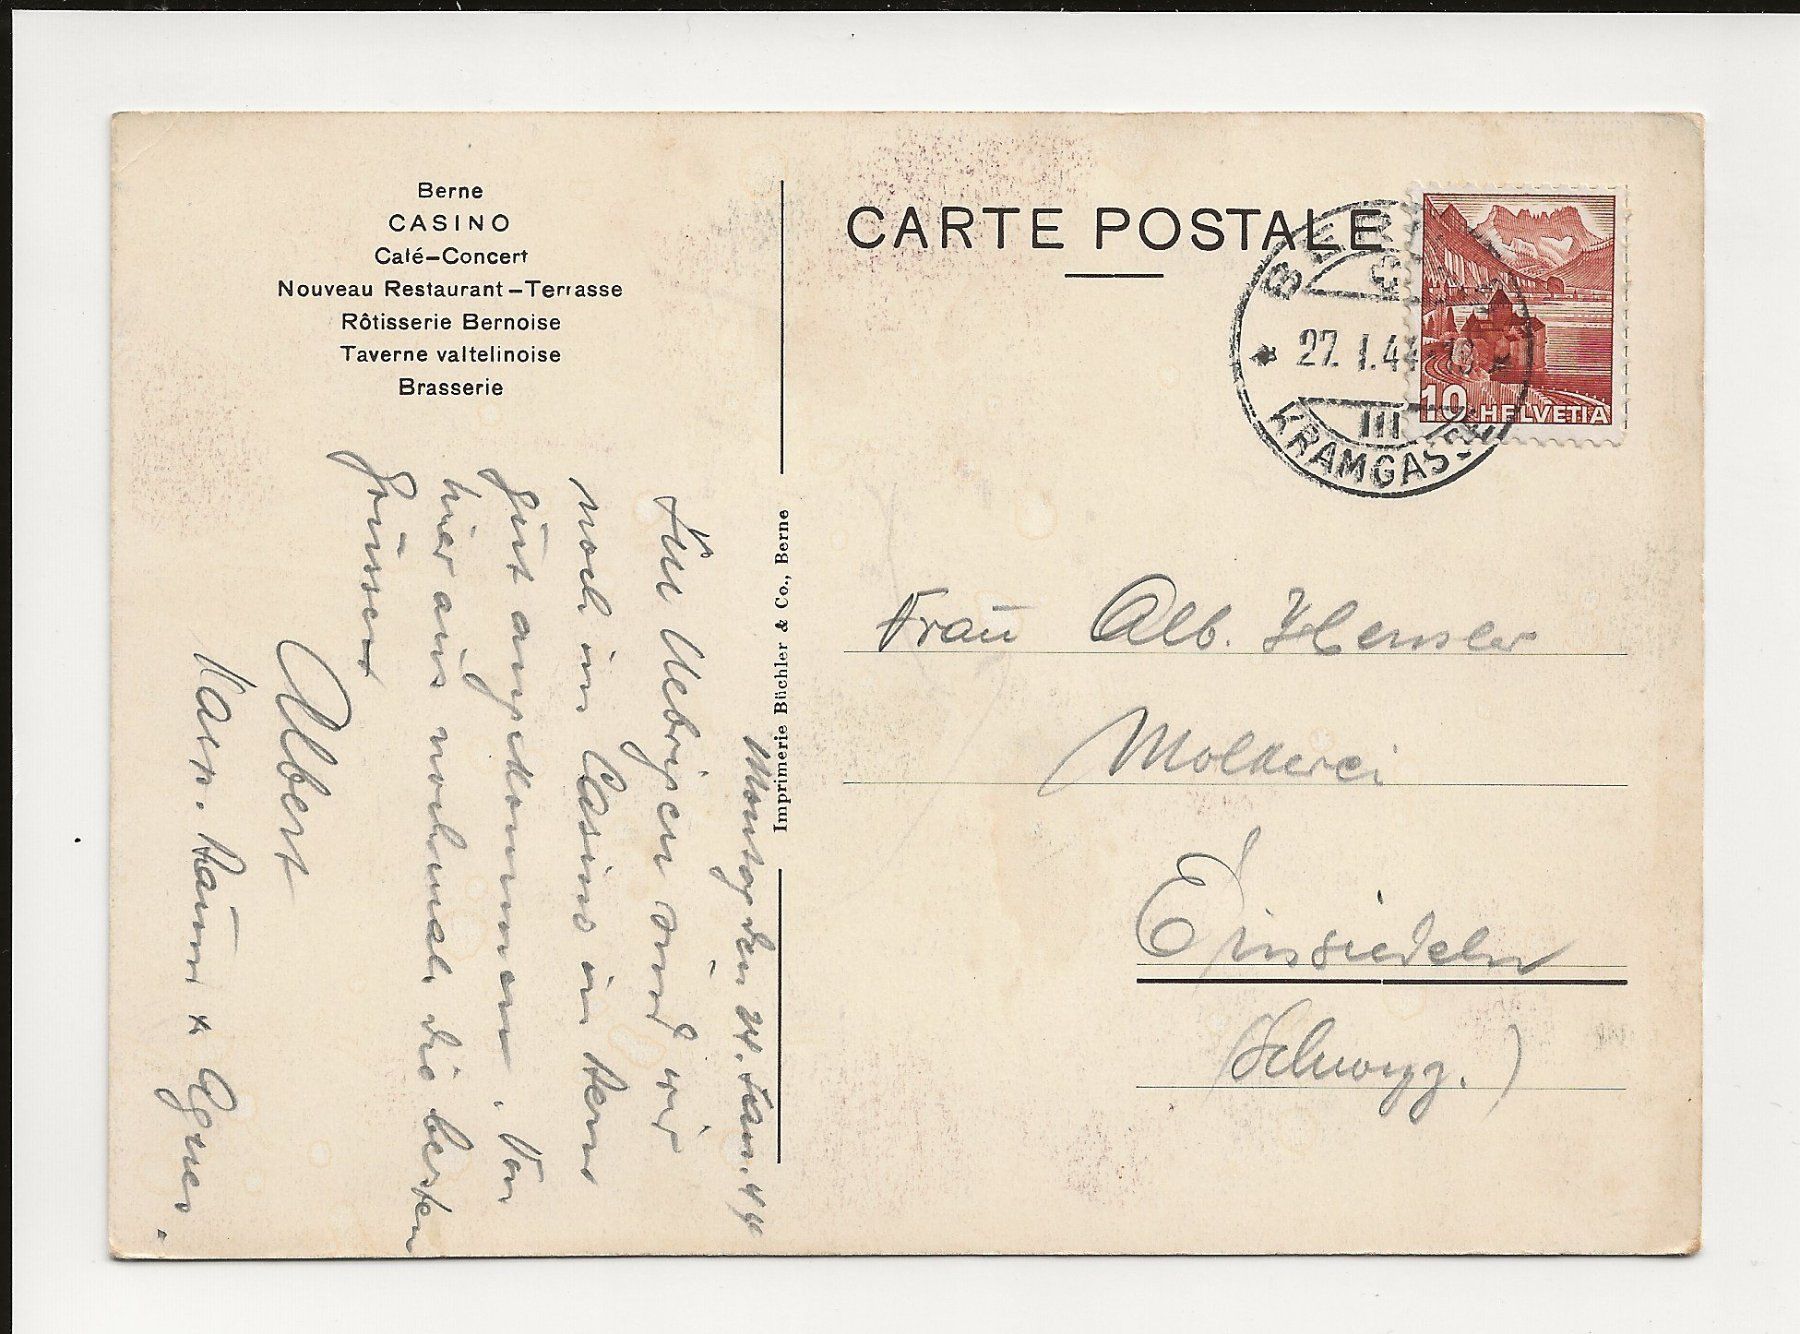 Berne
CASINO
Café-Concert
Nouveau Restaurant-Terrasse
Rôtisserie Bernoise
Taverne valtelinoise
Brasserie
Montag den 24. Jan. 44
Im Uebrigen sind wir
noch im Casino in Bern
gut angekommen. Von
hier aus nochmals die besten
Grüsse
Albert
& Agnes.
Imprimerie Büchler & Co., Berne
CARTE POSTALE
BERN
27. I. 44
III
KRAMGASSE
10 HELVETIA
Frau Alb. Hensler
Molkerei
Einsiedeln
(Schwyz.)